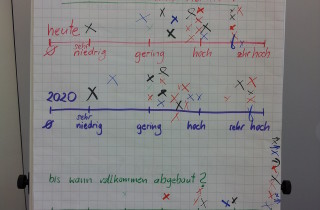 heute
Ø sehr niedrig gering hoch sehr hoch
2020
Ø sehr niedrig gering hoch sehr hoch
bis wann vollkommen abgebaut?